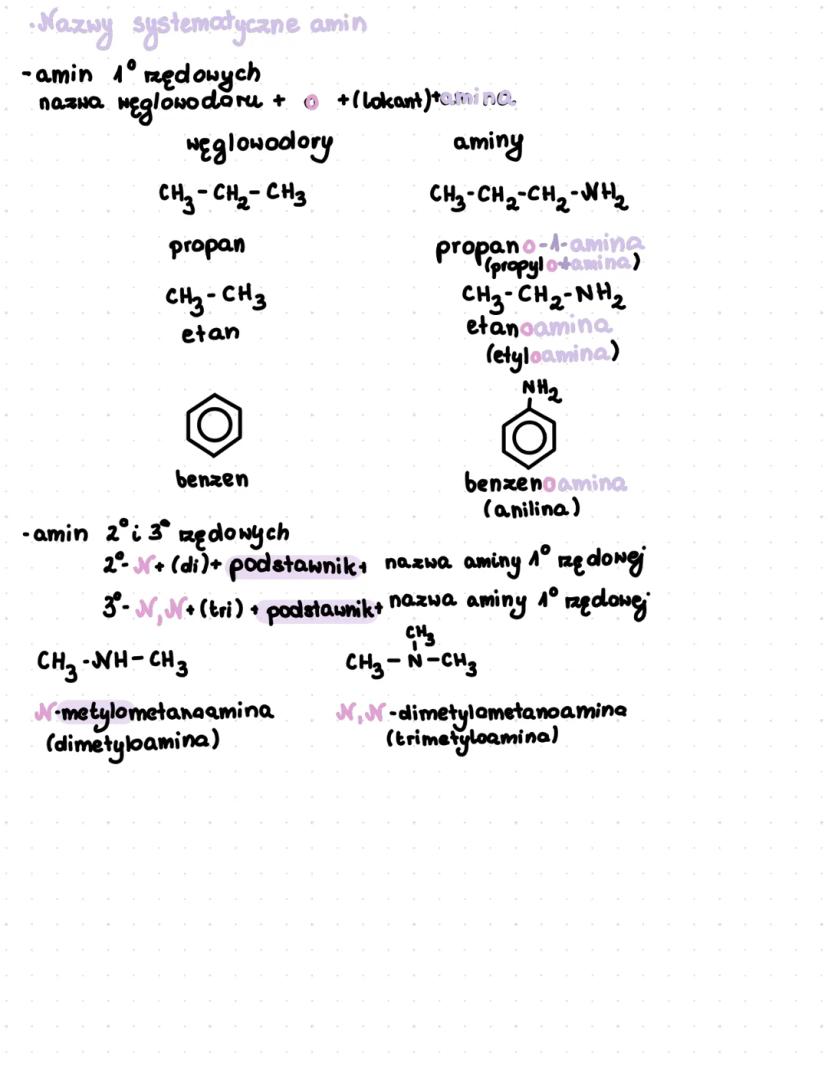 ·Nazwy systematyczne amin
-amin 1° rzędowych
nazwa węglowodoru + o +(lokant)+amina.
węglowodory aminy
CH₃-CH₂-CH₃ CH₃-CH₂-CH₂-NH₂
propan propano-1-amina
(propylo+amina)
CH₃-CH₃ CH₃-CH₂-NH₂
etan etanoamina
(etyloamina)
NH₂
benzen benzenoamina
(anilina)
-amin 2° i 3° rzędowych
2°- N+(di)+ podstawnik+ nazwa aminy 1° rzędowej
3°- N,N+(tri) + podstawnik+ nazwa aminy 1° rzędowej
CH₃
CH₃-NH-CH₃ CH₃-N-CH₃
N-metylometanoamina N,N-dimetylometanoamina
(dimetyloamina) (trimetyloamina)